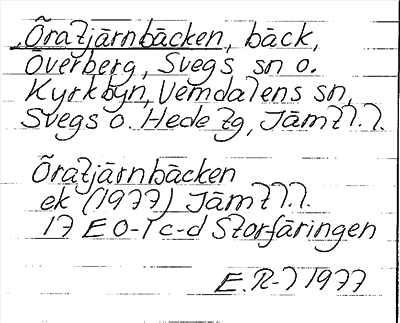 Öratjärnbäcken, bäck,
Överberg, Svegs sn o.
Kyrkbyn, Vemdalens sn,
Svegs o. Hede tg, Jämtl.l.
Öratjärnbäcken
ek (1977) Jämtl.l.
17 E 0-1 c-d Storfäringen
E. R-l 1977